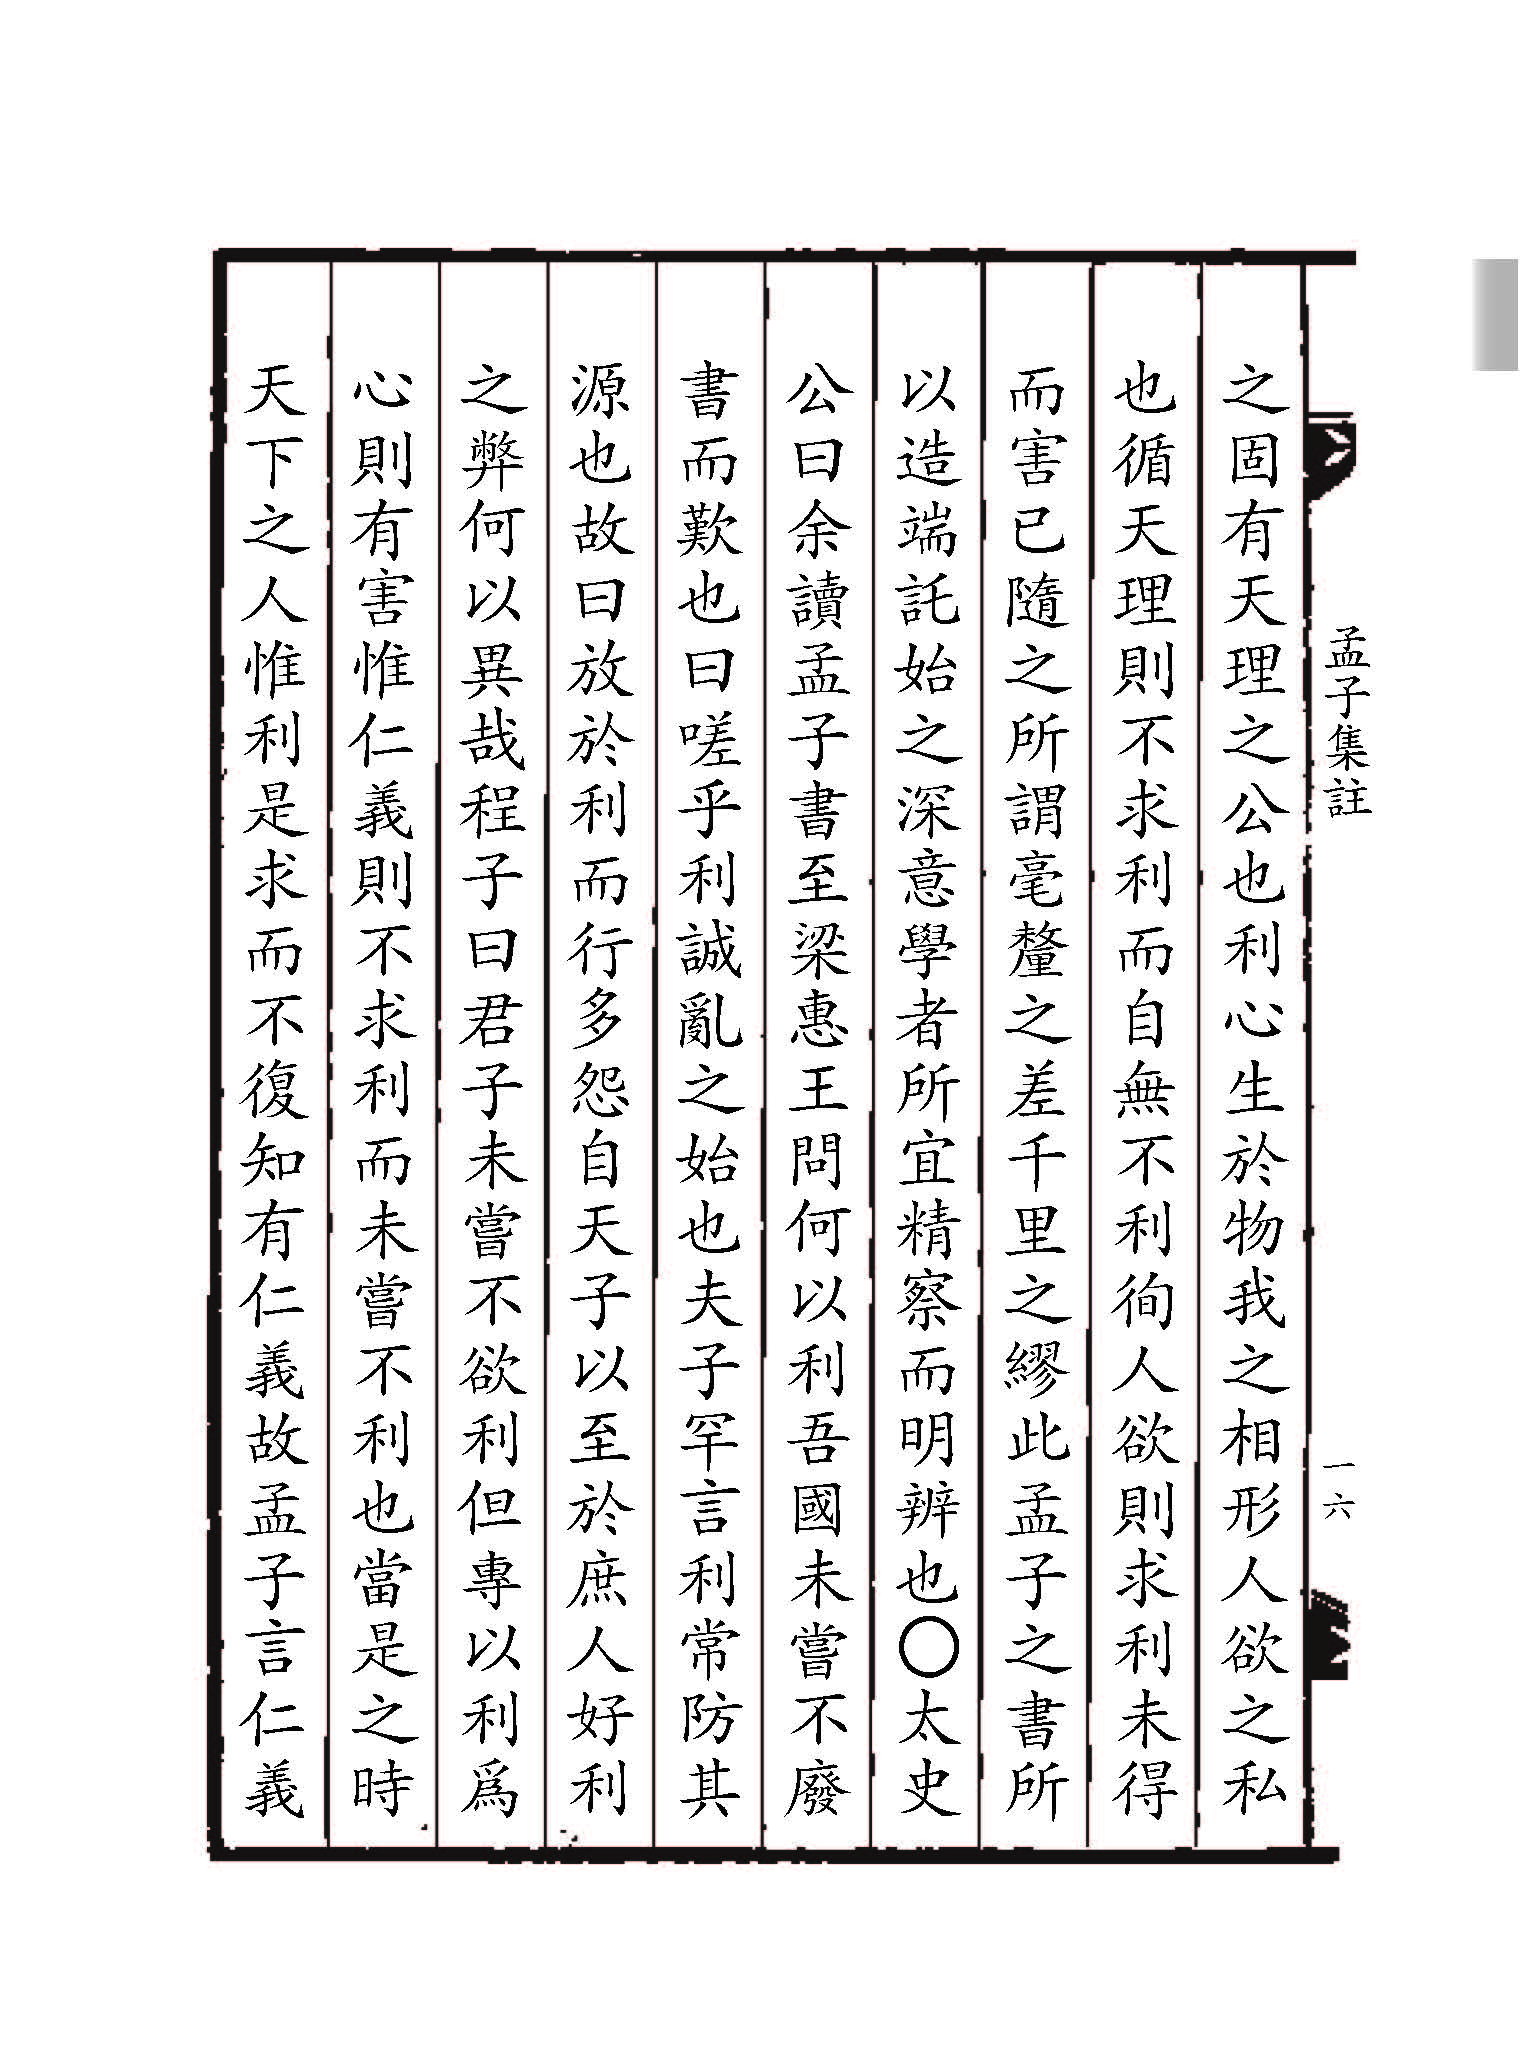 孟子集註
一六
之固有天理之公也利心生於物我之相形人欲之私
也循天理則不求利而自無不利徇人欲則求利未得
而害已隨之所謂毫釐之差千里之繆此孟子之書所
以造端託始之深意學者所宜精察而明辨也〇太史
公曰余讀孟子書至梁惠王問何以利吾國未嘗不廢
書而歎也曰嗟乎利誠亂之始也夫子罕言利常防其
源也故曰放於利而行多怨自天子以至於庶人好利
之弊何以異哉程子曰君子未嘗不欲利但專以利爲
心則有害惟仁義則不求利而未嘗不利也當是之時
天下之人惟利是求而不復知有仁義故孟子言仁義